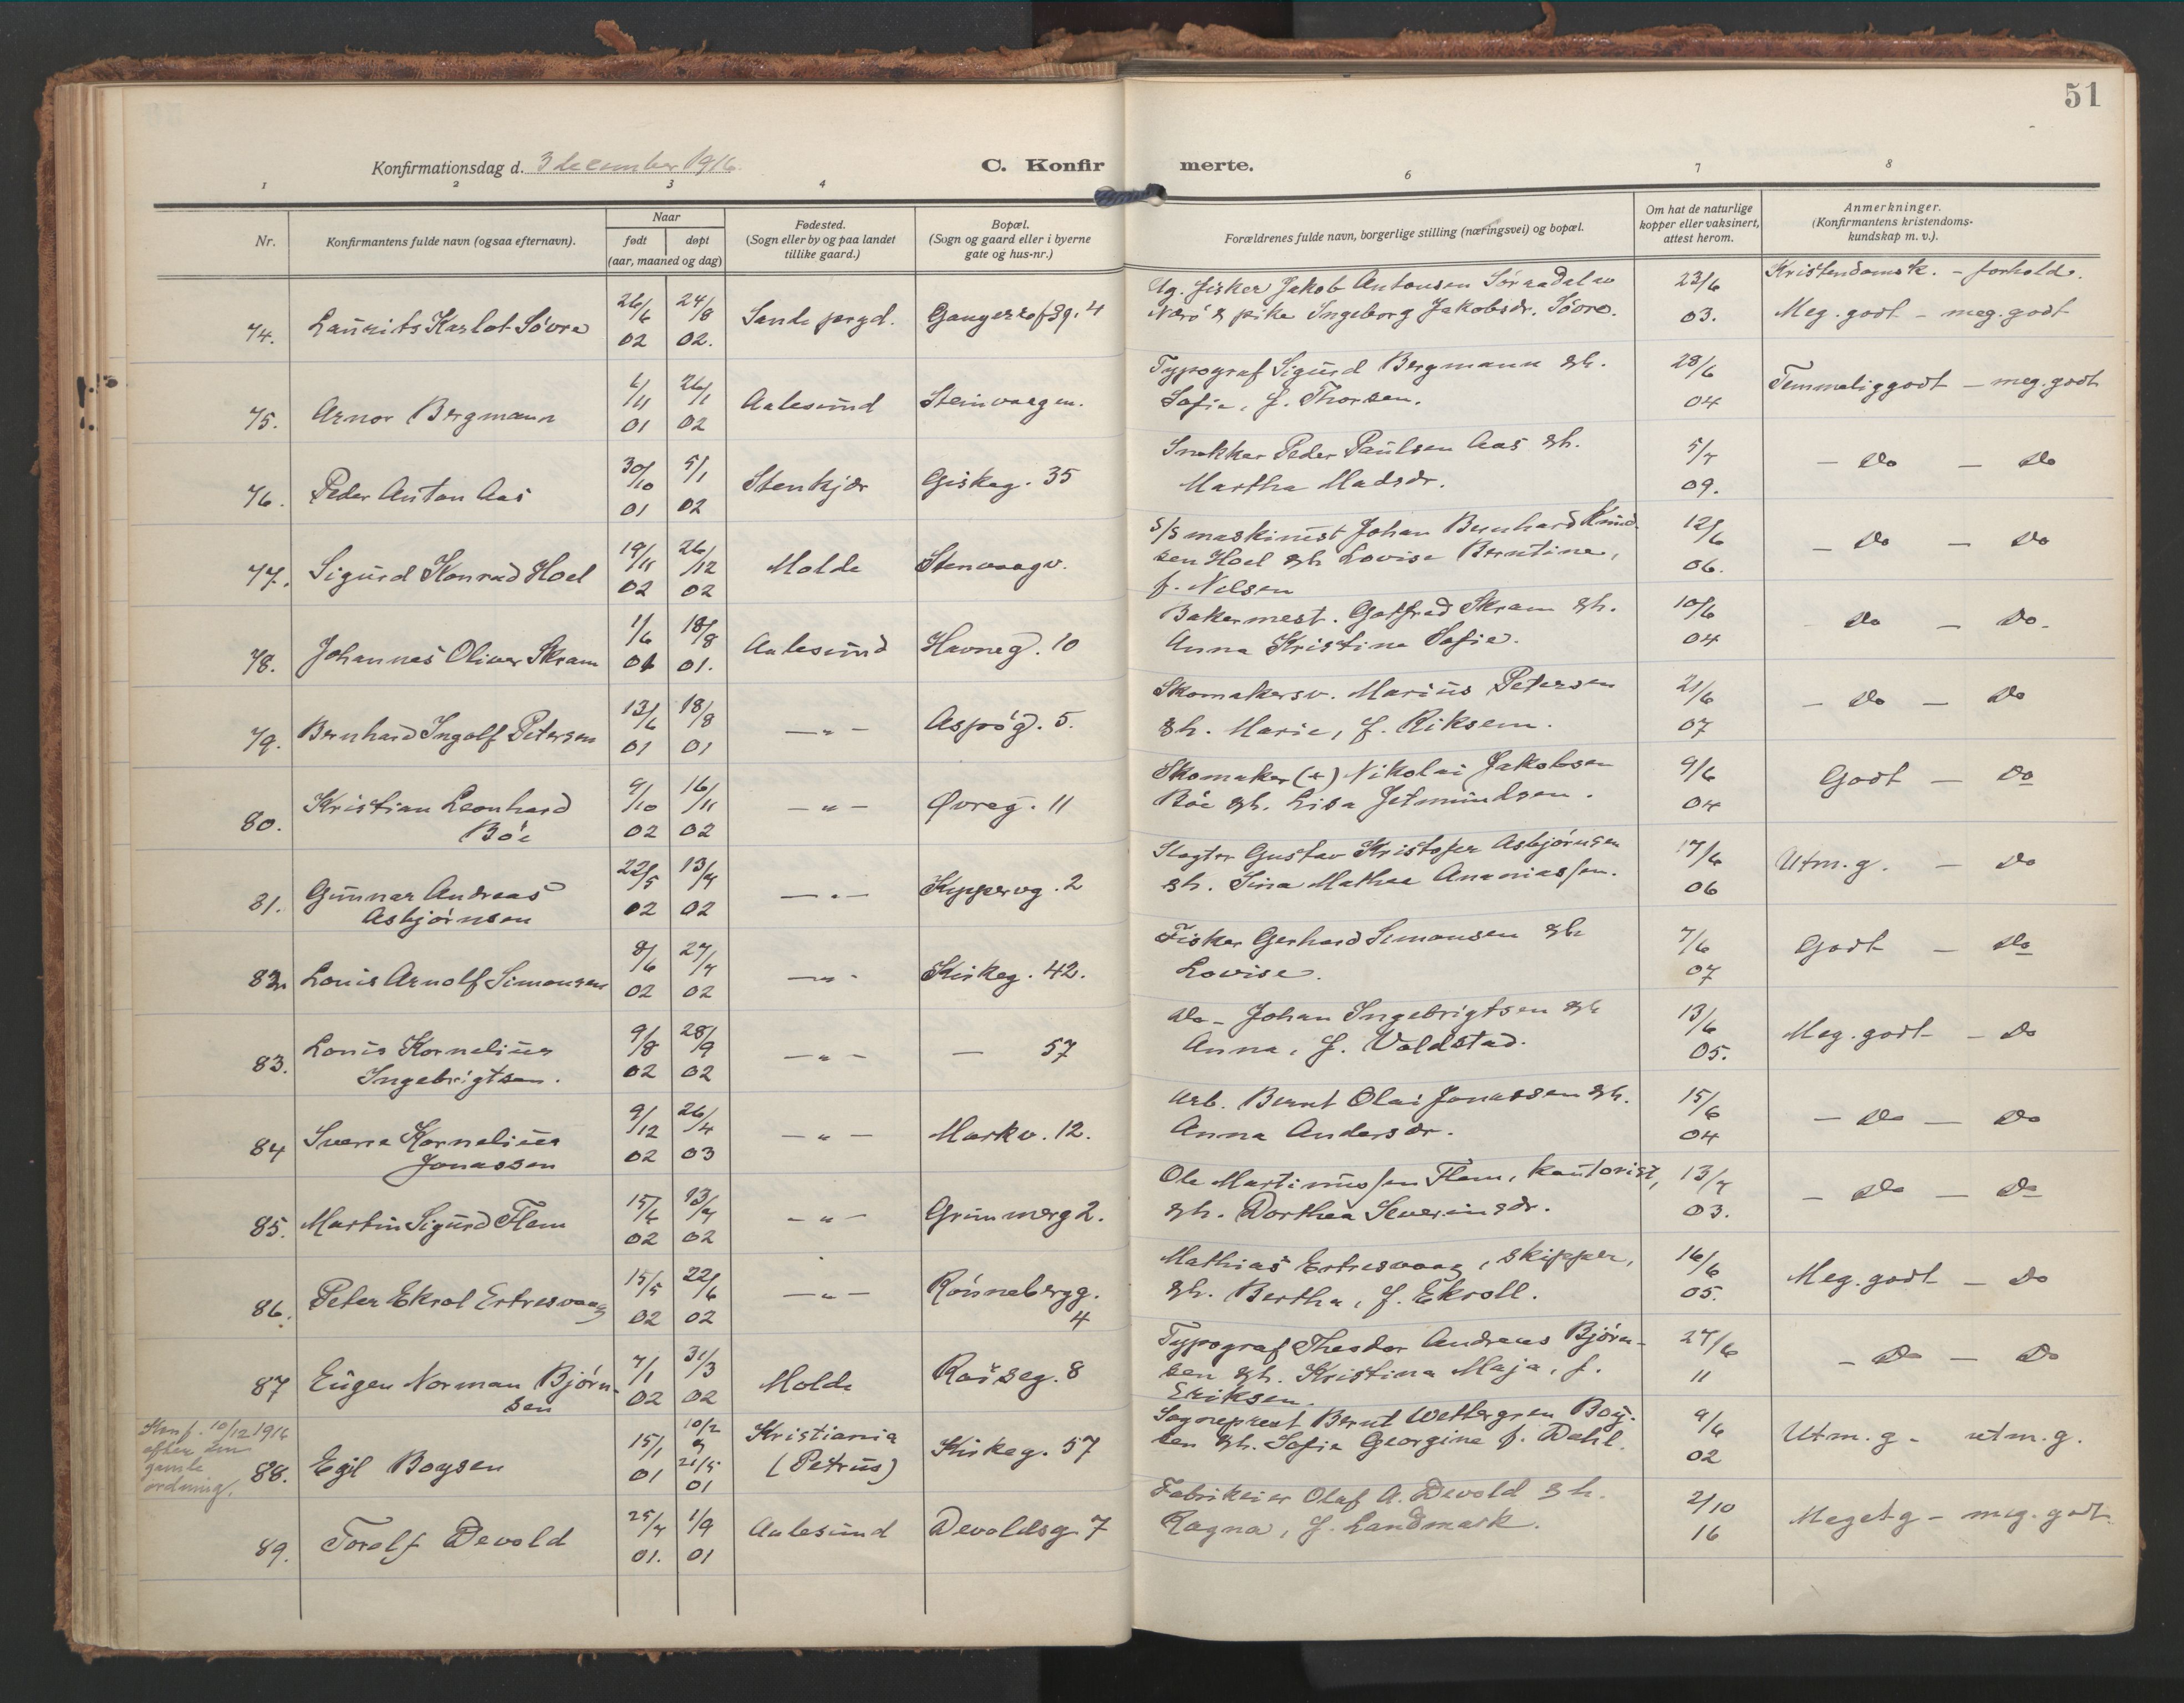 51
Konfirmationsdag d. 3 december 1916
C. Konfir merte.
1 2 3 4 6 7 8
Nr.
Konfirmantens fulde navn (ogsaa efternavn).
Naar
født døpt
(aar, maaned og dag)
Fødested.
(Sogn eller by og paa landet
tillike gaard.)
Bopæl.
(Sogn og gaard eller i byerne
gate og hus-nr.)
Forældrenes fulde navn, borgerlige stilling (næringsvei) og bopæl.
Om hat de naturlige
kopper eller vaksinert,
attest herom.
Anmerkninger.
(Konfirmantens kristendoms-
kundskap m. v.).
Kristendomsk. - forhold.
74. Laurits Karlot Søvre 26/6 02 24/8 02. Sande prgd. Gangerrolfsg. 4
Ug. fisker Jakob Antonsen
pike Ingeborg Jakobsdr. Søvre. 23/6 03. Meg. godt - meg. godt
75. Arnor Bergmann 6/11 01 26/1 02 Aalesund Steinvaagen.
Typograf Sigurd Bergmann gh.
Sofie, f. Thorsen. 28/6 04 Temmelig godt - meg. godt
76. Peder Anton Aas 30/10 01 5/1 02 Stenkjær Giskeg. 35
Snekker Peder Paulsen Aas gh.
Martha Madsdr. 5/7 09. - Do - Do
77. Sigurd Konrad Hoel 19/11 02 26/12 02 Molde Stenvaagv.
S/S maskinist Johan Bernhard Knud-
sen Hoel gh Lovise Berntine,
f. Nelsen 12/6 06. - Do - Do
78. Johannes Oliver Skram 1/6 01 18/8 01. Aalesund Havneg. 10
Bakermest. Gotfred Skram gh.
Anna Kristine Sofie. 10/6 04 Do - Do.
79. Bernhard Ingolf Petersen 13/6 01 18/8 01 - " - Aspøg. 5.
Skomakersv. Marius Petersen
gh. Marie, f. Riksem. 21/6 07 - Do - Do
80. Kristian Leonhard
Bøe 9/10 02 16/11 02 - " - Øvreg. 11
Skomaker (+) Nikolai Jakobsen
Bøe gh. Lisa Jetmundsen. 9/6 04 Godt - Do
81. Gunnar Andreas
Asbjørnsen 22/5 02 13/7 02 - " - Kypperog. 2
Slagter Gustav Kristofer Asbjørnsen
gh. Sina Mathea Ananiassen. 17/6 06 Utm. g. - Do
82. Louis Arnolf Simonsen 8/6 02 27/7 02 - " - Kirkeg. 42.
Fisker Gerhard Simonsen gh
Lovise. 7/6 07 Godt - Do
83. Louis Kornelius
Ingebrigtsen. 9/8 02 28/9 02 - " - - 57
do - Johan Ingebrigtsen gh
Anna, f. Voldstad. 13/6 05. Meg. godt - Do
84 Sverre Kornelius
Jonassen 9/12 02 26/4 03 - " - Markv. 12.
Arb. Bernt Olai Jonassen gh.
Anna Andersdr. 15/6 04 - Do - Do
85. Martin Sigurd Flem 15/6 02 13/7 02 - " - Grimmerg 2.
Ole Martinussen Flem, kontorist,
gh. Dorthea Severinsdr. 13/7 03. - Do - Do
86. Peter Ekrol Ertresvaag 15/5 02 22/6 02 - " - Rønnebergg.
4
Mathias Ertresvaag, skipper,
gh. Bertha, f. Ekroll. 16/6 05. Meg. godt - Do
87 Eugen Norman Bjørn-
sen 7/1 02 31/3 02 Molde Raŭseg. 8
Typograf Theodor Andreas Bjørn-
sen gh. Kristina Maja, f.
Eriksen. 27/6 11 - Do - Do
Konf. 10/12 1916
efter den
gamle
ordning.
88. Egil Boysen 15/1 01 10/2 og 21/5 01 Kristiania
(Petrus) Kirkeg. 57
Sogneprest Bernt Wettergren Boy-
sen gh. Sofie Georgine f. Dahl. 9/6 02 Utm. g - utm. g.
89. Torolf Devold 25/7 01. 1/9 01 Aalesund Devoldsg. 7
Fabrikeier Olaf A. Devold gh.
Ragna, f. Landmark. 2/10 16 Meget g - meg. godt.